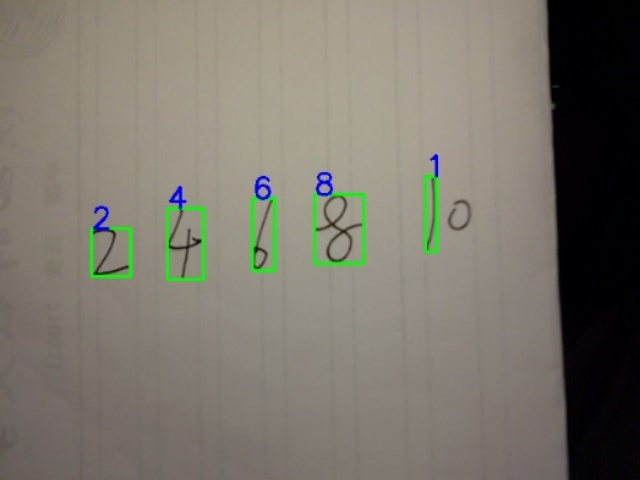 2 4 6 8 1
2 4 6 8 10